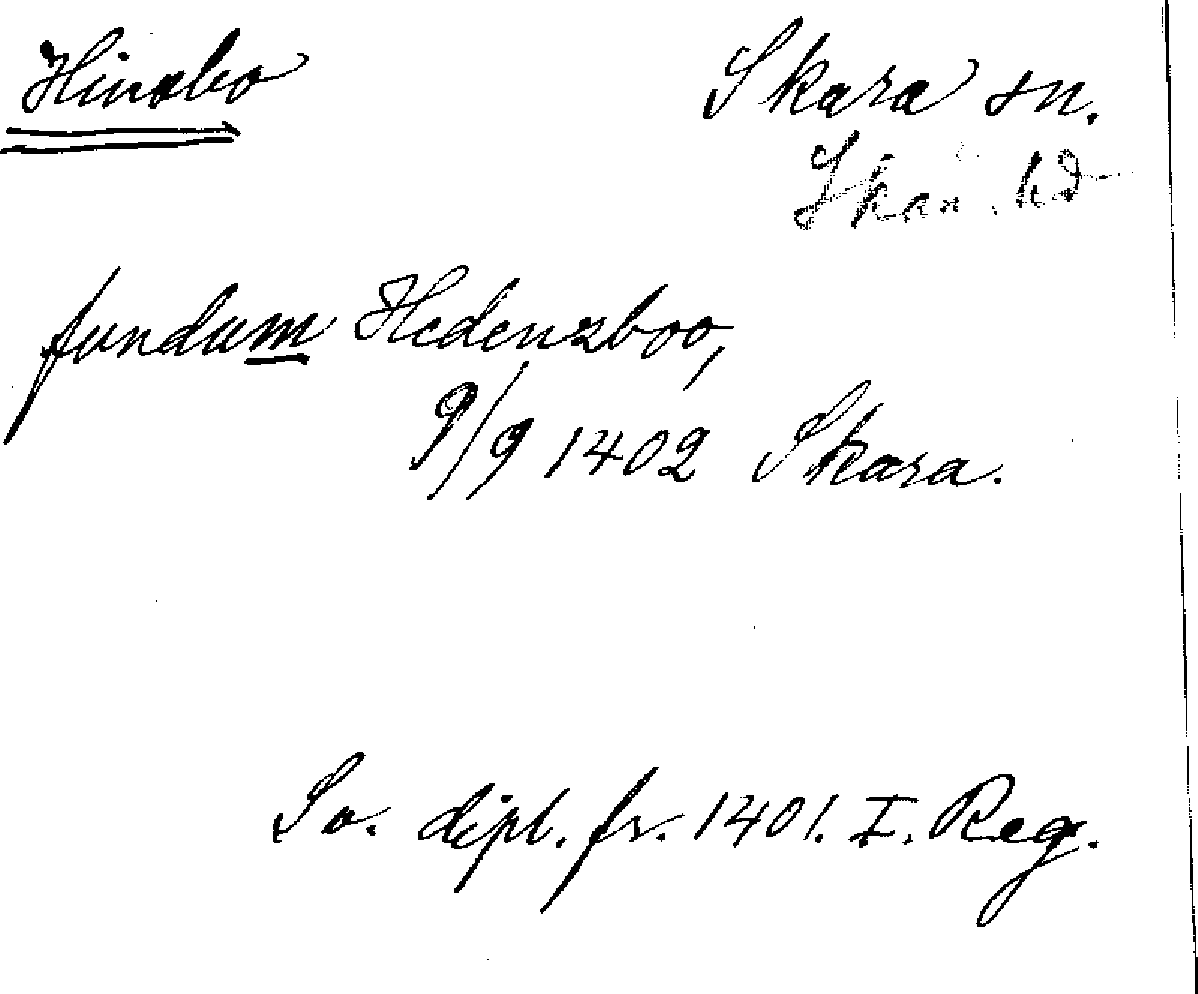 Hinsbo Skara sn.
Skån. hd
fundum Hedenzboo,
9/9 1402 Skara.
Sv. dipl. fr. 1401. I. Reg.